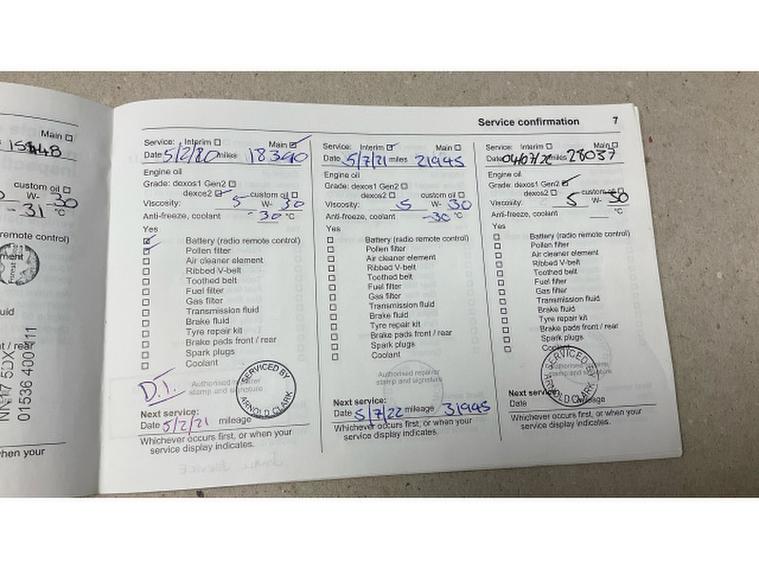 Main
15148
custom oil
W- 30
- 31 °C
remote control)
ment
uid
nt / rear
01536 400 11
when your
Service confirmation 7
Service: Interim Main
Date 5/2/20 miles 18390
Engine oil
Grade: dexos1 Gen2
dexos2 custom oil
Viscosity: 5 W- 30
Anti-freeze, coolant -30 °C
Yes
Battery (radio remote control)
Pollen filter
Air cleaner element
Ribbed V-belt
Toothed belt
Fuel filter
Gas filter
Transmission fluid
Brake fluid
Tyre repair kit
Brake pads front / rear
Spark plugs
Coolant
D.I.
Authorised repairer
stamp and signature
SERVICED BY
ARNOLD CLARK
Next service:
Date 5/2/21 mileage
Whichever occurs first, or when your
service display indicates.
Service: Interim Main
Date 5/7/21 miles 21945
Engine oil
Grade: dexos1 Gen2
dexos2 custom oil
Viscosity: 5 W- 30
Anti-freeze, coolant -30 °C
Yes
Battery (radio remote control)
Pollen filter
Air cleaner element
Ribbed V-belt
Toothed belt
Fuel filter
Gas filter
Transmission fluid
Brake fluid
Tyre repair kit
Brake pads front / rear
Spark plugs
Coolant
Authorised repairer
stamp and signature
Next service:
Date 5/7/22 mileage 31945
Whichever occurs first, or when your
service display indicates.
Service: Interim Main
Date 04/07/22 miles 28037
Engine oil
Grade: dexos1 Gen2
dexos2 custom oil
Viscosity: 5 W- 30
Anti-freeze, coolant °C
Yes
Battery (radio remote control)
Pollen filter
Air cleaner element
Ribbed V-belt
Toothed belt
Fuel filter
Gas filter
Transmission fluid
Brake fluid
Tyre repair kit
Brake pads front / rear
Spark plugs
Coolant
Authorised repairer
stamp and signature
SERVICED BY
ARNOLD CLARK
Next service:
Date mileage
Whichever occurs first, or when your
service display indicates.